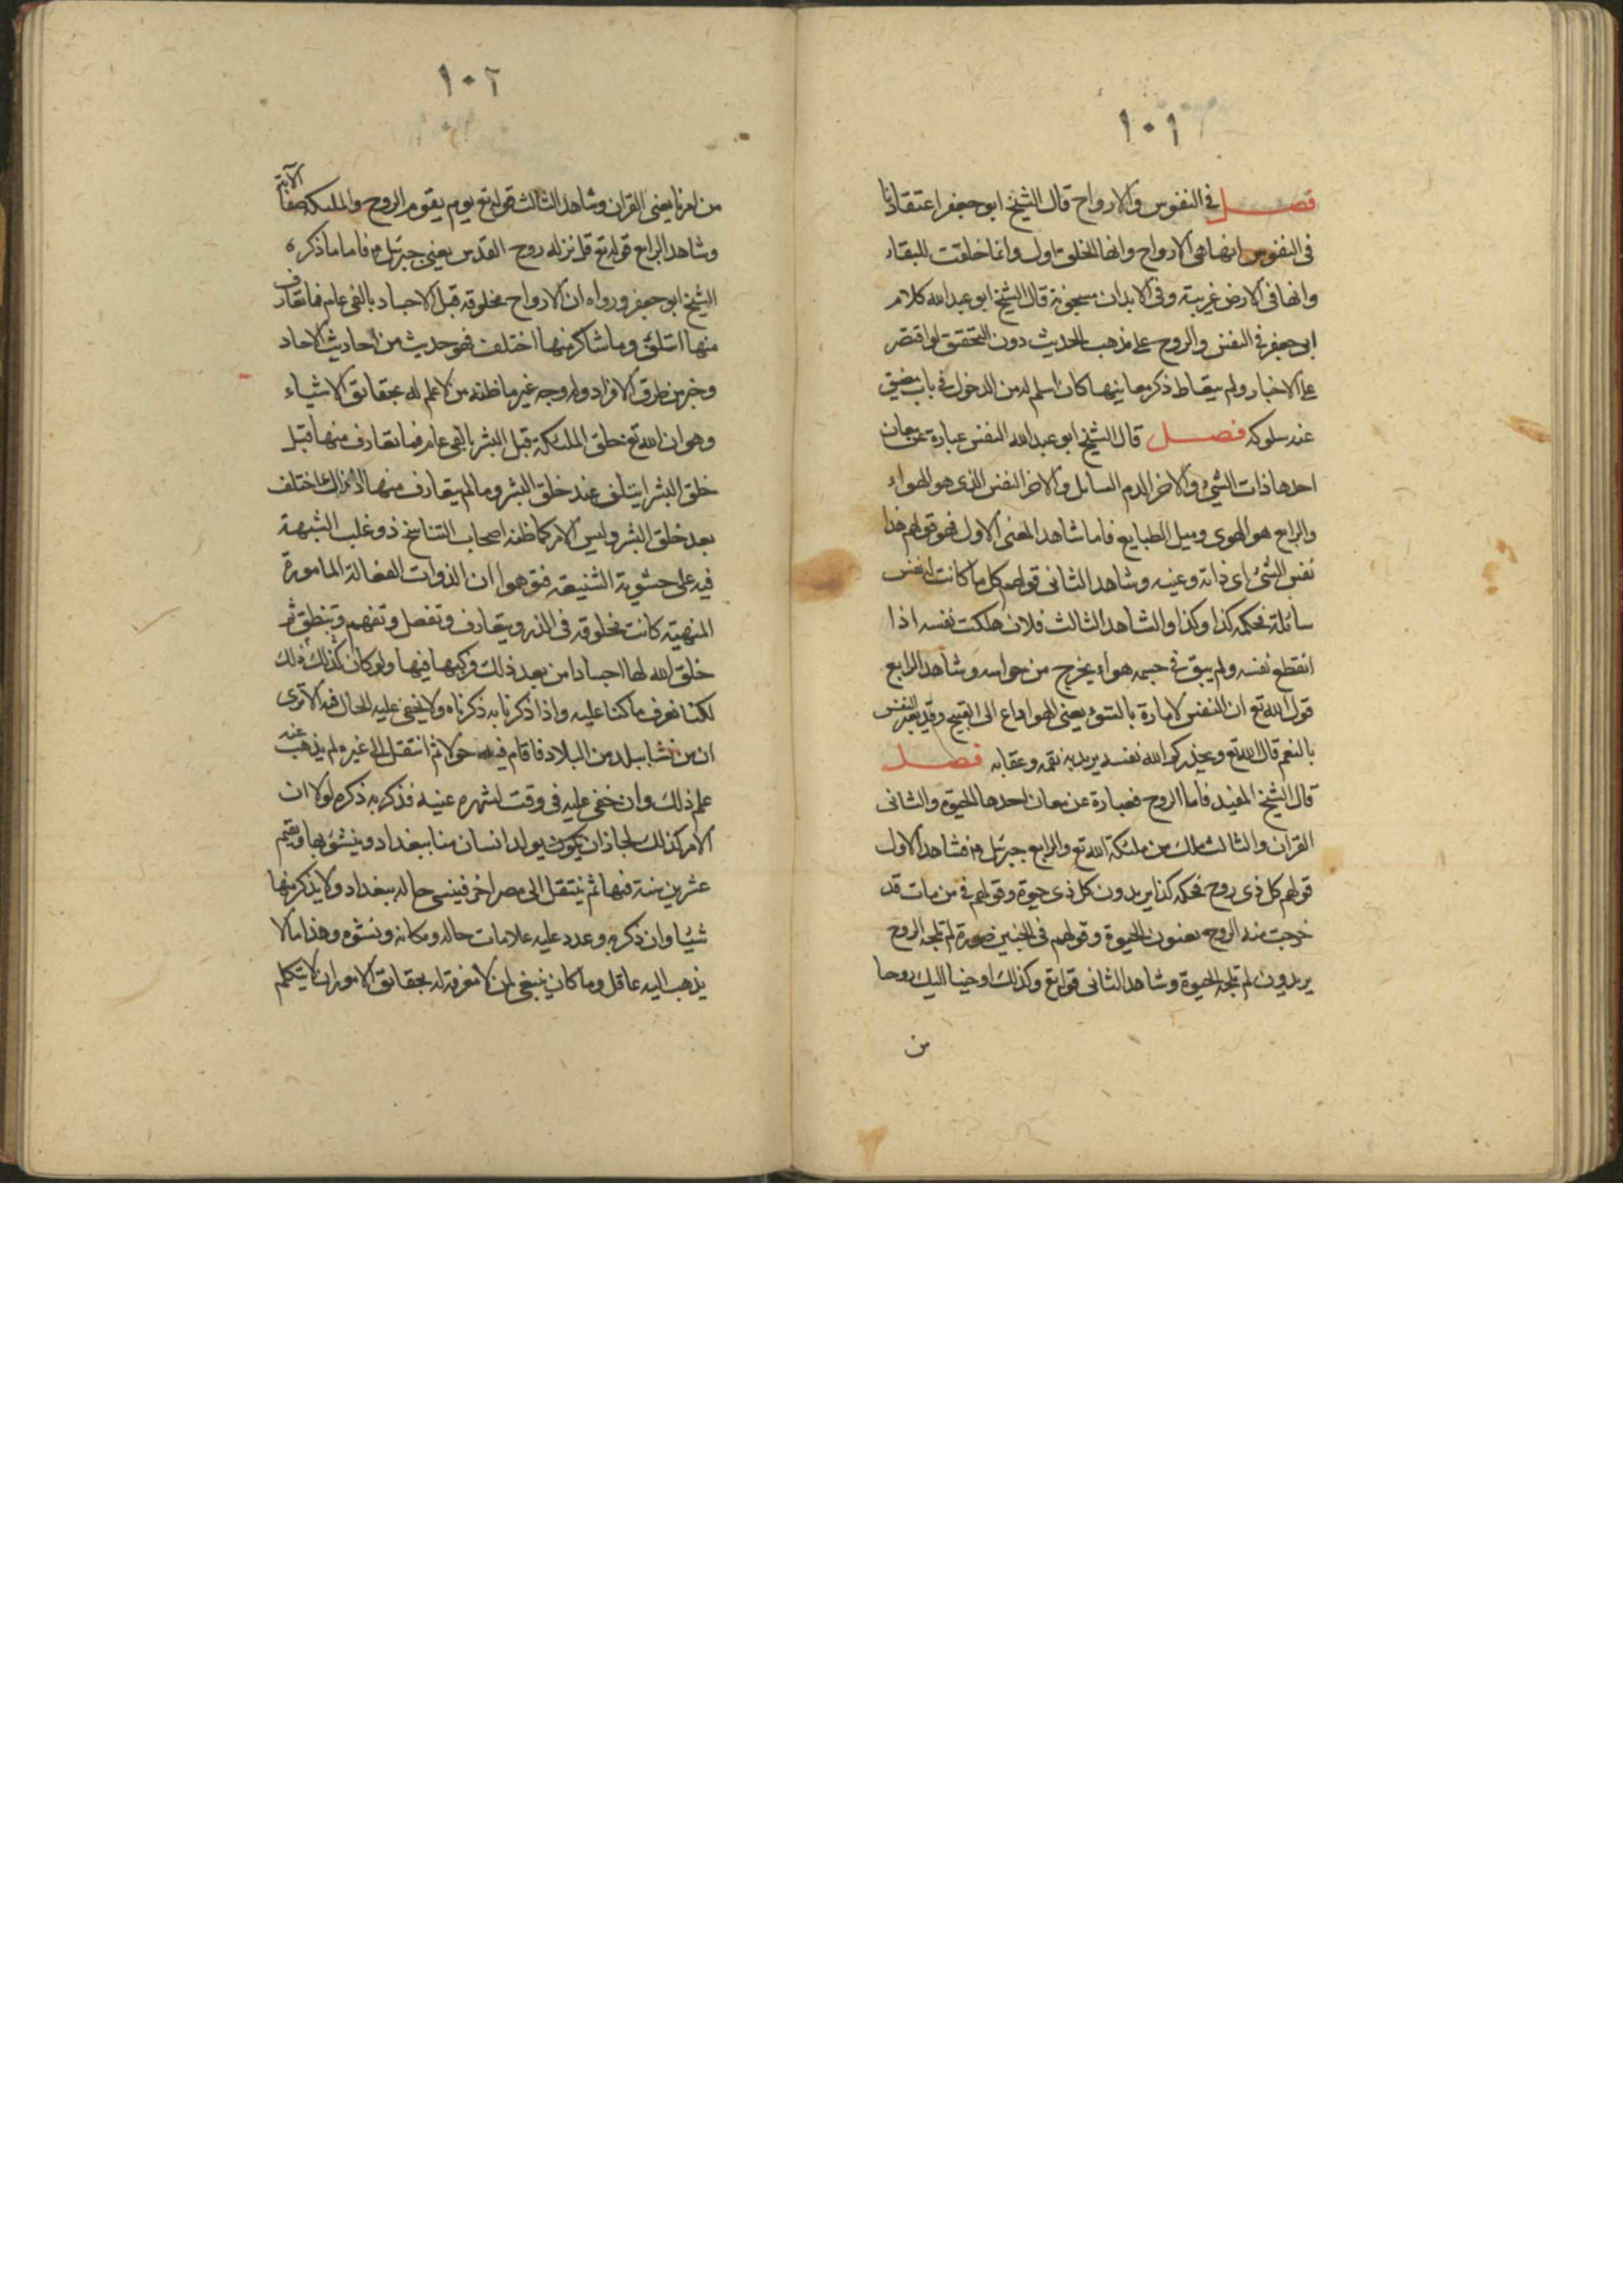 ١٠١
فصل في النفوس والارواح قال الشيخ ابو جعفر اعتقادنا
في النفوس انها هي الارواح وانها الخلق الاول وانما خلقت للبقاء
وانها في الارض غريبة وفي الابدان مسجونة قال الشيخ ابو عبد الله كلام
ابي جعفر في النفس والروح على مذهب الحديث دون التحقيق لو اقتصر
على الاخبار ولم يتعاط ذكر معانيها كان اسلم له من الدخول في باب يضيق
عنه سلوكه فصل قال الشيخ ابو عبد الله النفس عبارة عن معان
احدها ذات الشئ والاخر الدم السائل والاخر النفس الذي هو الهواء
والرابع هو الهوى وميل الطبايع فاما شاهد المعنى الاول فهو قولهم هذا
نفس الشئ اى ذاته وعينه وشاهد الثاني قولهم كل ما كانت له نفس
سائلة فحكمه كذا وكذا والشاهد الثالث فلان هلكت نفسه اذا
انقطع نفسه ولم يبق في جسمه هواء يخرج من حواسه وشاهد الرابع
قول الله تع ان النفس لامارة بالسوء يعني الهوا داع الى القبيح وقد يعبر بالنفس
بالنعم قال الله تع ويحذركم الله نفسه يريد به نقمه وعقابه فصل
قال الشيخ المفيد فاما الروح فعبارة عن معان احدها الحيوة والثاني
القران والثالث ملك من ملئكة الله تع والرابع جبرئيل ع فشاهد الاول
قولهم كل ذى روح فحكمه كذا يريدون كل ذى حيوة وقولهم في من مات قد
خرجت منه الروح يعنون الحيوة وقولهم في الجنين صورة لم تلجه الروح
يريدون لم تلجه الحيوة وشاهد الثاني قوله تع وكذلك اوحينا اليك روحا
من
١٠٢
من امرنا يعني القران وشاهد الثالث قوله تع يوم يقوم الروح والملئكة صفا الآية
وشاهد الرابع قوله تع قل نزله روح القدس يعني جبرئيل ع فاما ما ذكره
الشيخ ابو جعفر ورواه ان الارواح مخلوقة قبل الاجساد بالفي عام فما تعارف
منها ائتلف وما تناكر منها اختلف فهو حديث من احاديث الاحاد
وخبر من طرق الافراد وله وجه غير ما ظنه من لا علم له بحقائق الاشياء
وهو ان الله تع خلق الملئكة قبل البشر بالفي عام فما تعارف منها قبل
خلق البشر ايتلف عند خلق البشر وما لم يتعارف منها اذ ذاك اختلف
بعد خلق البشر وليس الامر كما ظنه اصحاب التناسخ ذو غلب الشبهة
فيه على حشوية الشيعة فتوهموا ان الذوات الفعالة المامورة
المنهية كانت مخلوقة في الذر ويتعارف وتعقل وتفهم وتنطق ثم
خلق الله لها اجسادا من بعد ذلك فركبها فيها ولو كان كذلك ذلك
لكنا نعرف ما كنا عليه واذا ذكرنا به ذكرناه ولا يخفى عليه الحال فيه الا ترى
ان من نشا ببلد من البلاد فاقام فيه حولا ثم انتقل الى غيره لم يذهب عنه
علم ذلك وان خفي عليه في وقت لشهره عينه فذكر به ذكره لولا ان
الامر كذلك لجاز ان يكون يولد انسان منا ببغداد وينشؤ بها ويقيم
عشرين سنة فيها ثم ينتقل الى مصر اخر فينسى حاله ببغداد ولا يذكر منها
شيئا وان ذكر به وعدد عليه علامات حاله ومكانه ونشؤه وهذا ما لا
يذهب اليه عاقل وما كان ينبغي لمن لا معرفة له بحقائق الامور ان لا يتكلم